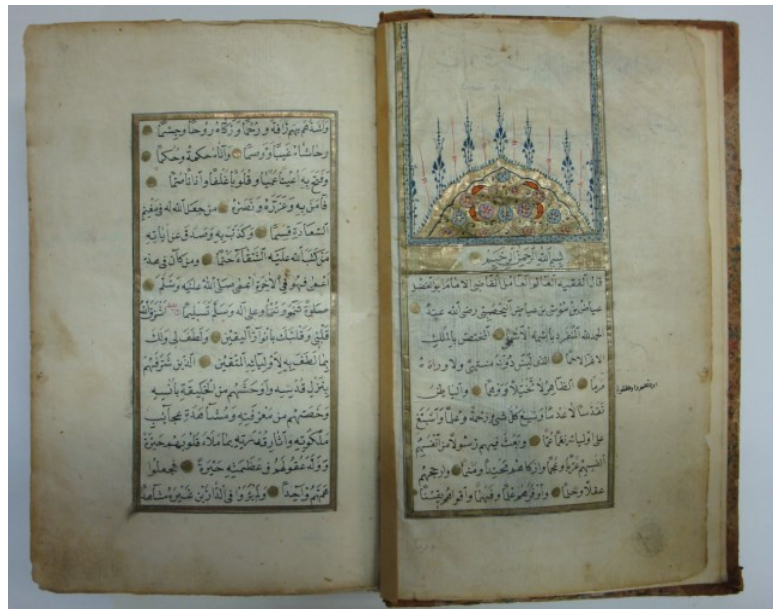 بسم الله الرحمن الرحيم
قال الفقيه العالم العامل القاضي الامام ابو الفضل
عياض بن موسى بن عياض اليحصبي رضي الله عنه
الحمد لله المنفرد باسمه الاسمى المختص بالملك
الاعز الاحمى الذي ليس دونه منتهى ولا وراءه
مرمى الظاهر لا تخيلا ووهما والباطن
تقدسا لا عدما وسع كل شئ رحمة وعلما واسبغ
على اوليائه نعما عما وبعث فيهم رسولا من انفسهم
انفسهم عربا وعجما وازكاهم محتدا ومنمى وارجحهم
عقلا وحلما واوفرهم علما وفهما واقواهم يقينا
واشدهم بهم رافة ورحما وزكاه روحا وجسما
وحاشاه عيبا ووصما وآتاه حكمة وحكما
وفتح به اعينا عميا وقلوبا غلفا وآذانا صما
فآمن به وعزره ونصره من جعل الله له في مغنم
السعادة قسما وكذب به وصدف عن آياته
من كتب الله عليه الشقاء حتما ومن كان في هذه
اعمى فهو في الآخرة اعمى صلى الله عليه وسلم
صلوة تنمو وتنمى وعلى آله وسلم تسليما اشرق الله
قلبي وقلبك بانوار اليقين ولطف لي ولك
بما لطف به لاوليائه المتقين الذين شرفهم
بنزل قدسه واوحشهم من الخليقة بانسه
وخصهم من معرفته ومشاهدة عجائب
ملكوته وآثار قدرته بما ملأ قلوبهم حبرة
ووله عقولهم في عظمته حيرة فجعلوا
همهم واحدا ولم يروا في الدارين غير مشاهدا